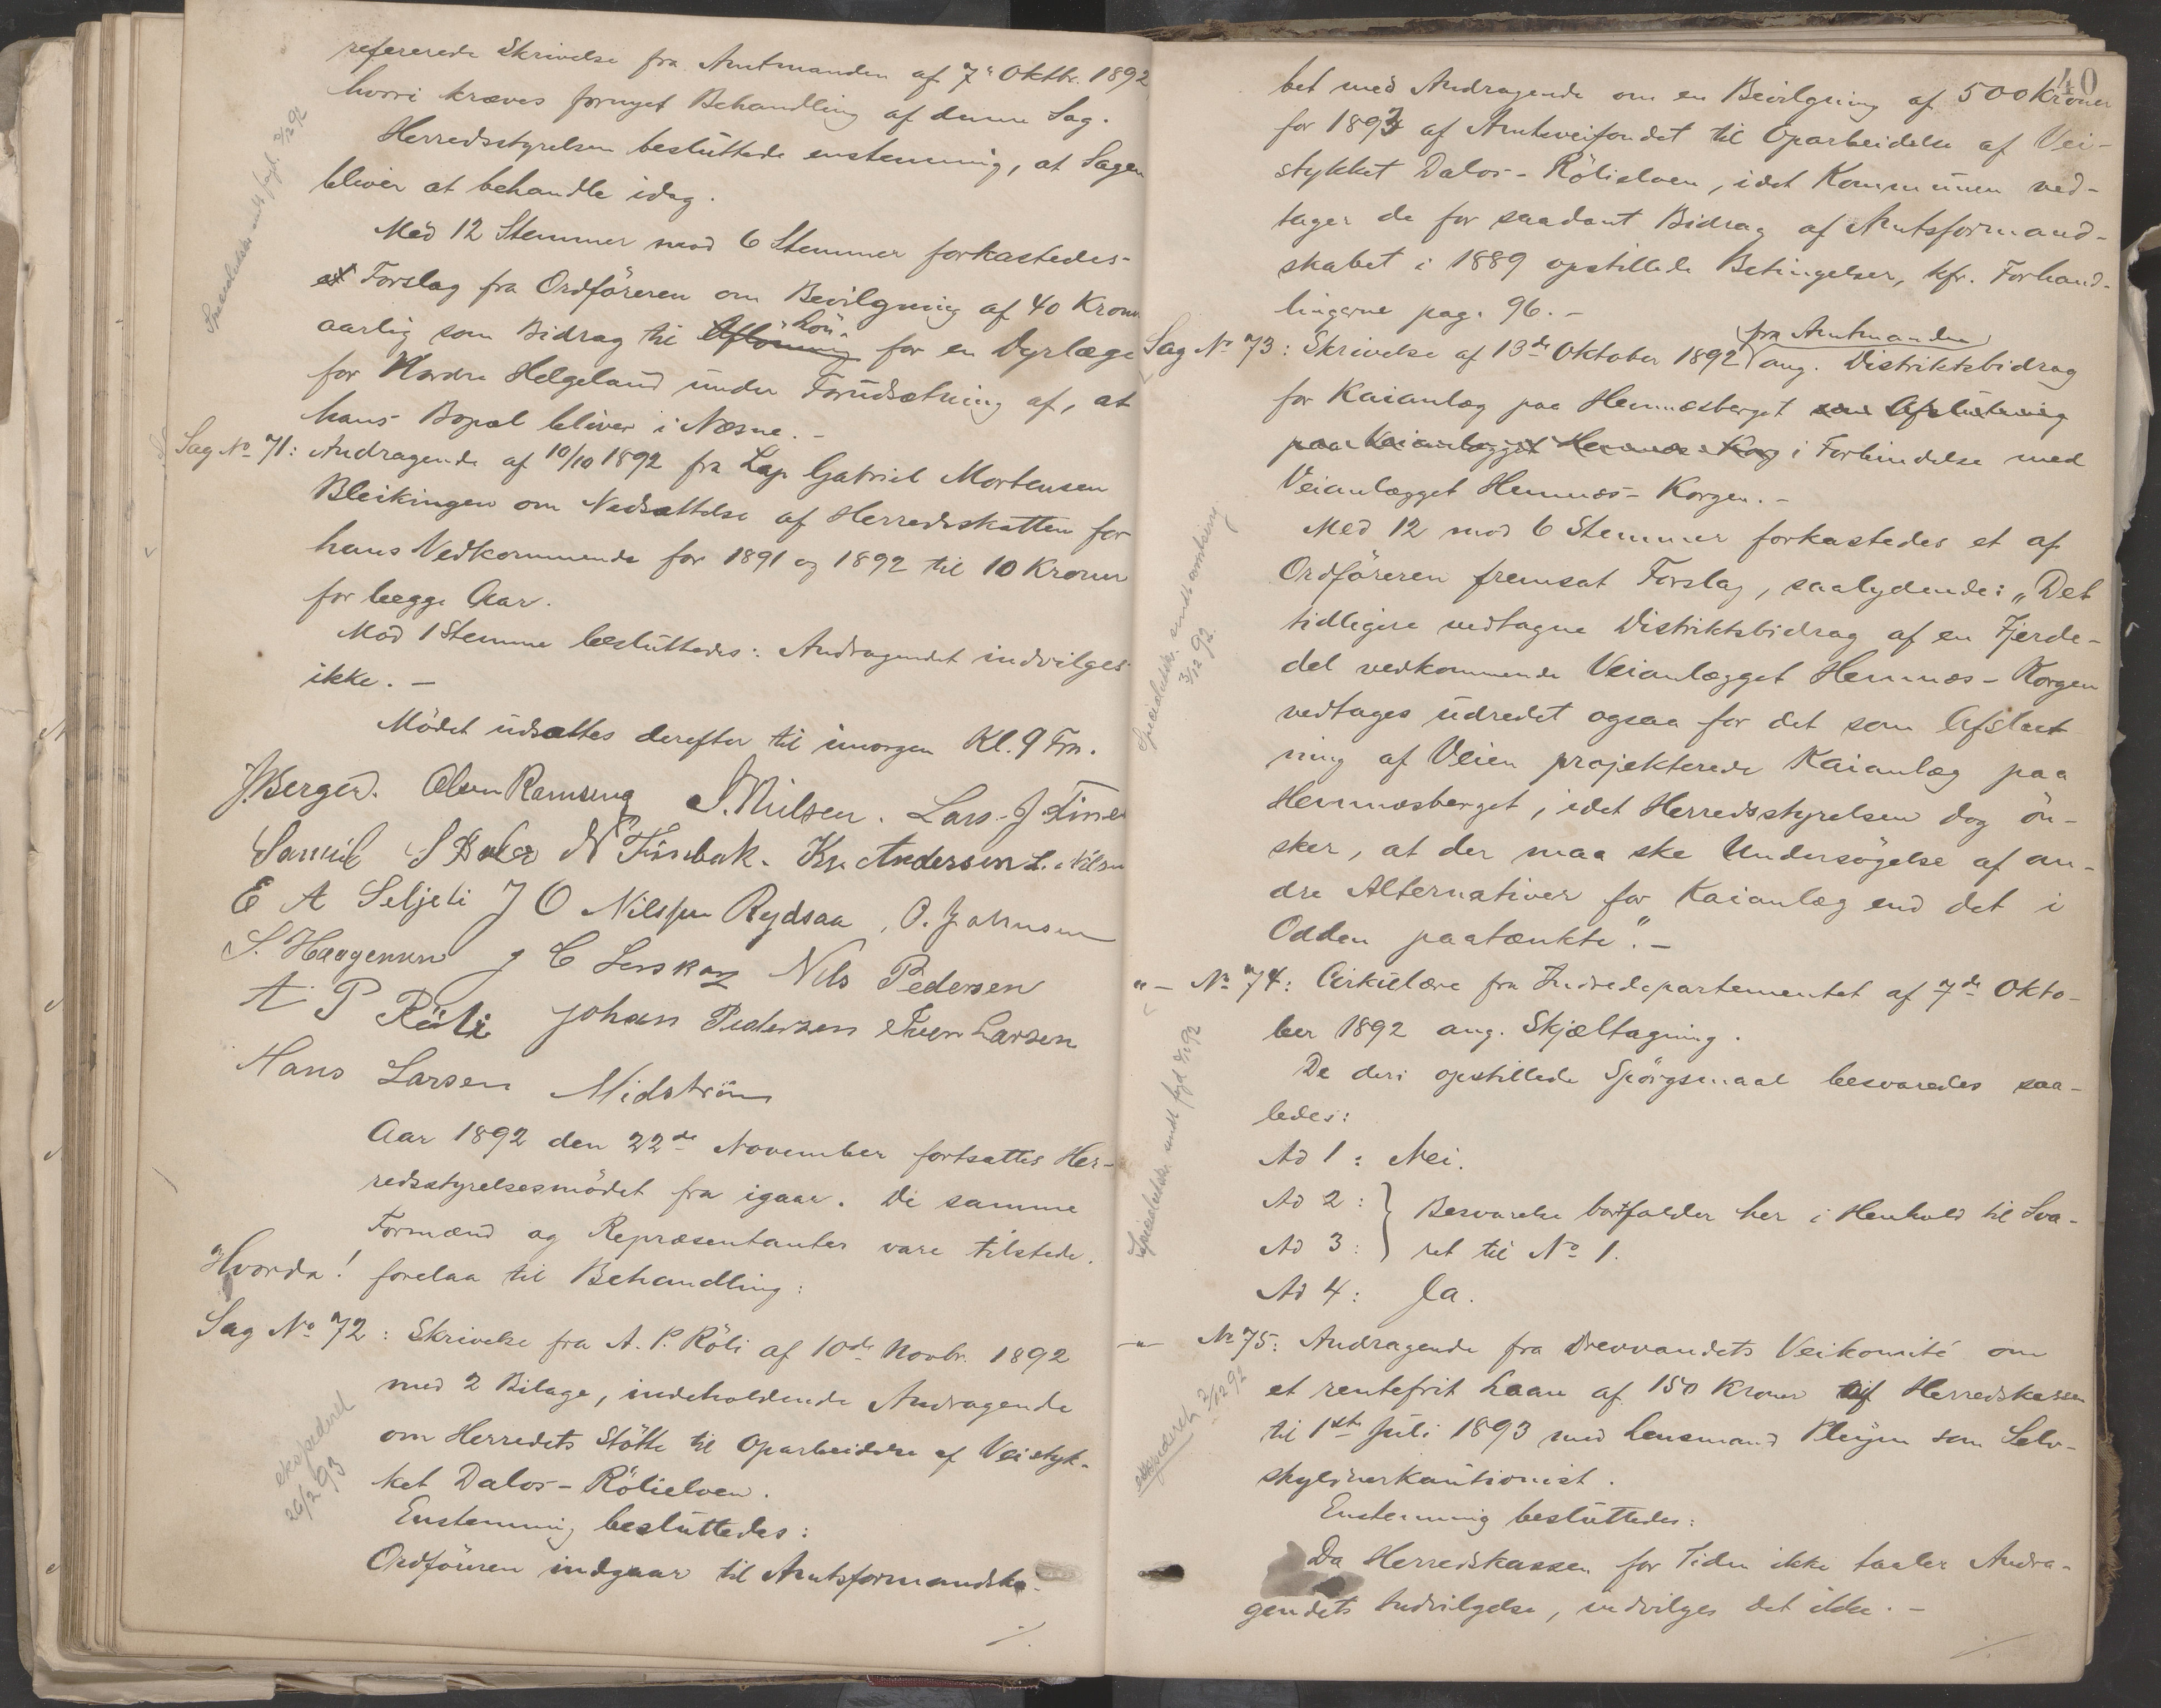 refererede Skrivelse fra Amtmanden af 7de Oktbr. 1892,
hvori kræves fornyet Behandling af denne Sag.
Herredsstyrelsen besluttede enstemmig, at Sagen
bliver at behandle idag.
Med 12 Stemmer mod 6 Stemmer forkastedes
et Forslag fra Ordföreren om Bevilgning af 40 Kroner
aarlig som Bidrag til Aflönning Lön for en Dyrlæge
for Nordre Helgeland under Forudsætning af, at
hans Bopæl bliver i Næsne. -
Sag No 71: Andragende af 10/10 1892 fra Lap Gabriel Mortensen
Bleikingen om Nedsættelse af Herredsskatten for
hans Vedkommende for 1891 og 1892 til 10 Kroner
for begge Aar.
Mod 1 Stemme besluttedes: Andragendet indvilges
ikke. -
Mödet udsattes derefter til imorgen Kl. 9 Fm.
J. Berger. Olein Ramseng S. Nilsen. Lars J Finne
Samuel S Daler N Finbak. Kr. Andersen L. Nilsen
E A Seljeli J O Nilssen Rydsaa, O. Johnsen
S. Haagensen J C Lenskog Nils Pedersen
A P Röli Johan Pedersen Sven Larsen
Hans Larsen Midström
Aar 1892 den 22de November fortsattes Her-
redsstyrelsesmödet fra igaar. De samme
Formænd og Repræsentanter vare tilstede.
Hvorda! forelaa til Behandling:
Sag No 72: Skrivelse fra A. P. Röli af 10de Novbr. 1892
med 2 Bilage, indeholdende Andragende
om Herredets Stötte til Oparbeidelse af Veistyk-
ket Dalos-Rölielven.
ekspederet
26/2 93
Enstemmig besluttedes:
Ordföreren indgaar til Amtsformandska-
40
bet med Andragende om en Bevilgning af 500 Kroner
for 1893 af Amtsveifondet til Oparbeidelse af Vei-
stykket Dalos-Rölielven, idet Kommunen ved-
tager de for saadant Bidrag af Amtsformand-
skabet i 1889 opstillede Betingelser, kfr. Forhand-
lingerne pag. 96. -
Sag No 73: Skrivelse af 13de Oktober 1892 fra Amtmanden ang. Distriktsbidrag
for Kaianlæg paa Hemnæsberget som Afslutning
paa Veianlægget Hemnæs-Korg i Forbindelse med
Veianlægget Hemnæs-Korgen. -
Med 12 mod 6 Stemmer forkastedes et af
Ordföreren fremsat Forslag, saalydende: „Det
tidligere vedtagne Distriktsbidrag af en Fjerde-
del vedkommende Veianlægget Hemnæs-Korgen
vedtages udredet ogsaa for det som Afslut
ning af Veien projekterede Kaianlæg paa
Hemnæsberget, idet Herredsstyrelsen dog ön-
sker, at der maa ske Undersögelse af an-
dre Alternativer for Kaianlæg end det i
Odden paatænkte". -
" - No 74: Cirkulære fra Indredepartementet af 7de Okto-
ber 1892 ang. Skjæltagning.
De deri opstillede Spörgsmaal besvaredes saa-
ledes:
Ad 1: Nei.
Ad 2: } Besvarelse bortfalder her i Henhold til Sva-
Ad 3: } ret til No 1.
Ad 4: Ja.
- " - No 75: Andragende fra Drevvandets Veikomité om
et rentefrit Laan af 150 Kroner af Herredskassen
til 1ste Juli 1893 med Lensmand Pleym som Selv-
skyldnerkautionist.
ekspederet 3/12 92
Enstemmig besluttedes:
Da Herredskassen for Tiden ikke taaler Andra-
gendets Indvilgelse, indvilges det ikke. -